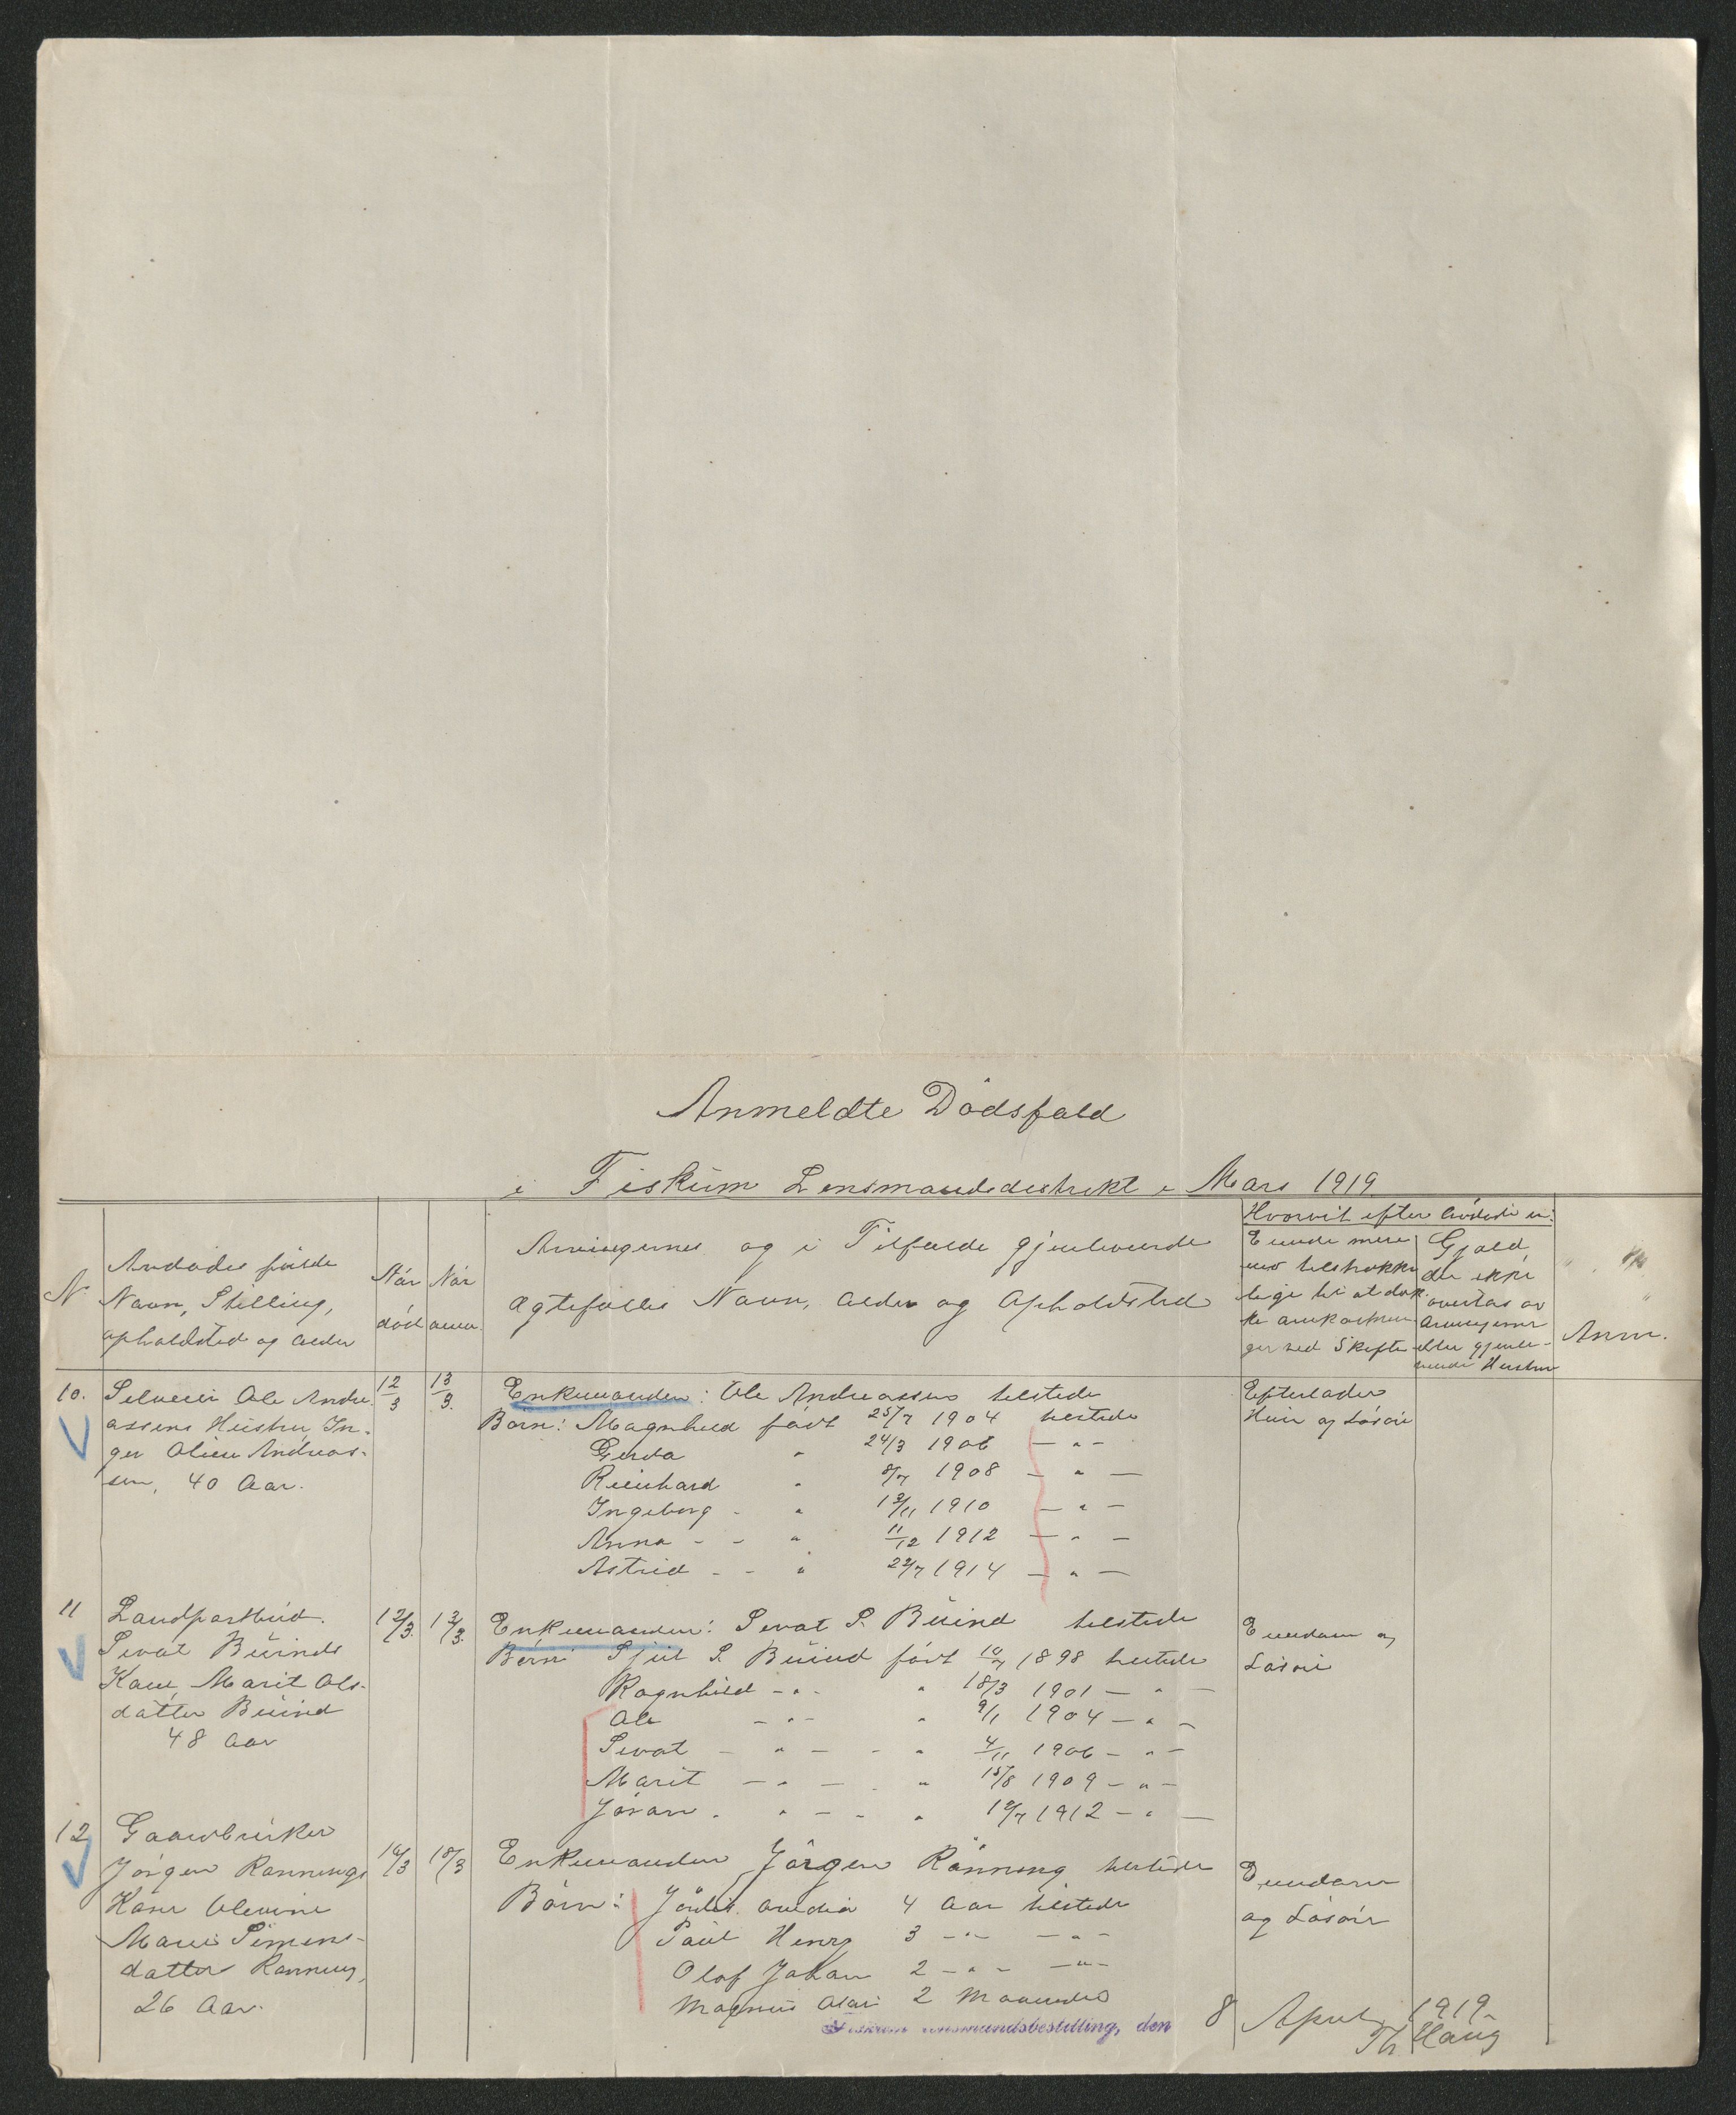 Anmeldte Dødsfald
i Fiskum Lensmandsdistrikt i Mars 1919
N
Avdødes fulde
Navn, Stilling,
opholdsted og alder
Når
død
Når
anm.
Arvingernes og i Tilfælde gjenlevende
Ægtefælles Navn, Alder og Opholdsted
Hvorvit efter avdøde er:
Eiende mere
end tilstrække
lige til at dæk
ke omkostnin
ger ved Skifte
Gjæld,
der ikke
overtas av
Arvingerne
eller gjenle-
vende Hustru
Anm.
10.
Selveier Ole Andre
assens Hustru In-
ger Oline Andreas-
sen, 40 Aar.
12/3
13/3.
Enkemanden: Ole Andreassen hersteds
Børn: Magnhild født 25/7 1904 hersteds
Gerda " 24/3 1906 — " —
Reinhard " 8/7 1908 — " —
Ingeborg - " 13/11 1910 — " —
Anna - - " 11/12 1912 — " —
Astrid - - " 22/7 1914 — " —
Efterlader
Huus og Løsøre
11
Landpostbud.
Sevat Buinds
Kone, Marit Ols-
datter Buind
48 Aar
12/3.
13/3.
Enkemanden: Sevat S. Buind hersteds
Børn S. Buind født 10/7 1898 hersteds
Ragnhild - " - " 18/3 1901 — " —
Ole - " - " 9/1 1904 — " —
Sevat - " - - " 4/11 1906 — " —
Marit - " - - " 15/8 1909 — " —
Jøran - " - - " 12/7 1912 — " —
Eiendom og
Løsøre
12
Gaardbruker
Jørgen Rønnings
Kone Olevine
Marie Simens-
datter Rønning,
26 Aar.
16/3
18/3
Enkemanden Jørgen Rønning hersteds
Børn: Jørdis 4 Aar hersteds
Paul Henry 3 - " - — " —
Olaf Johan 2 - " - — " —
Magnus 2 Maaneder
Eiendom
og Løsøre
Fiskum lensmandsbestilling, den 8 April 1919.
Th Haug